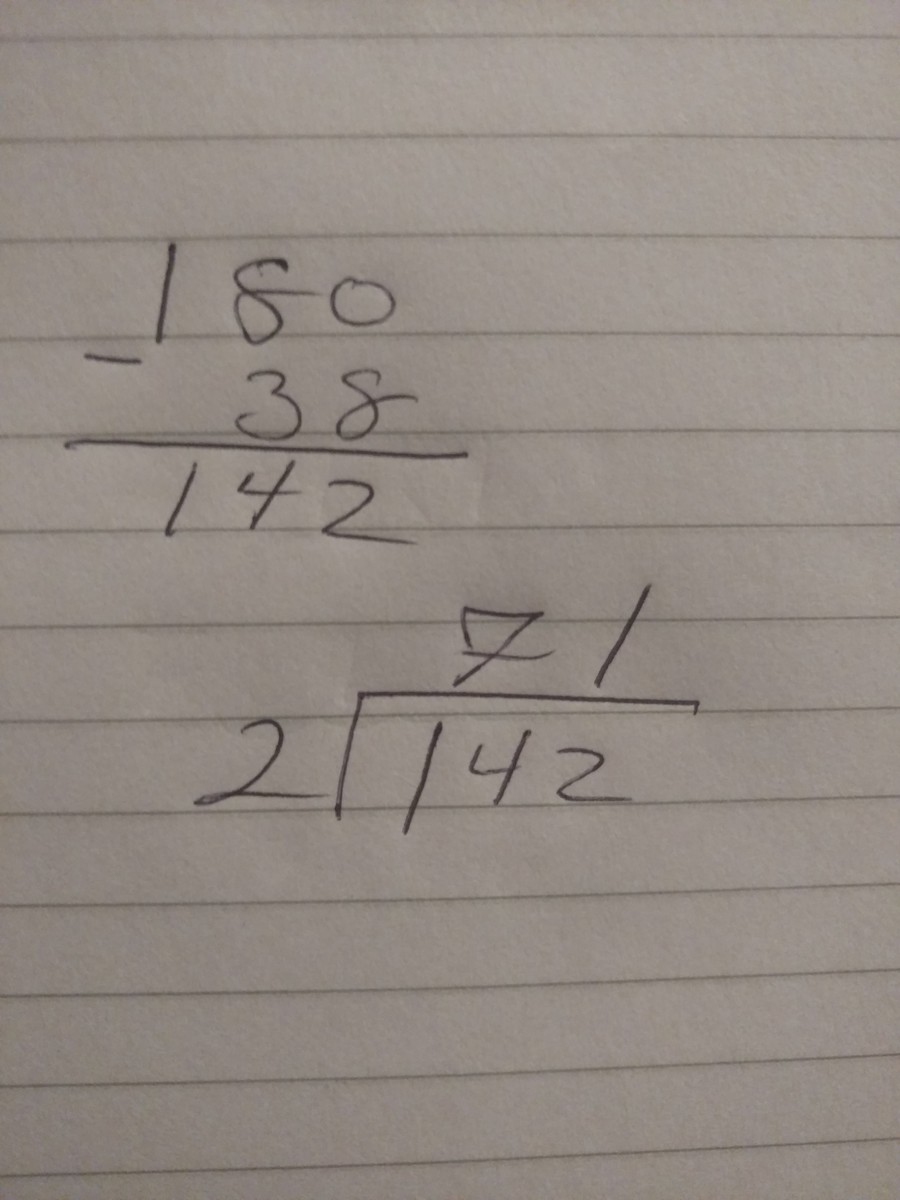 180
- 38
142
71
2 142